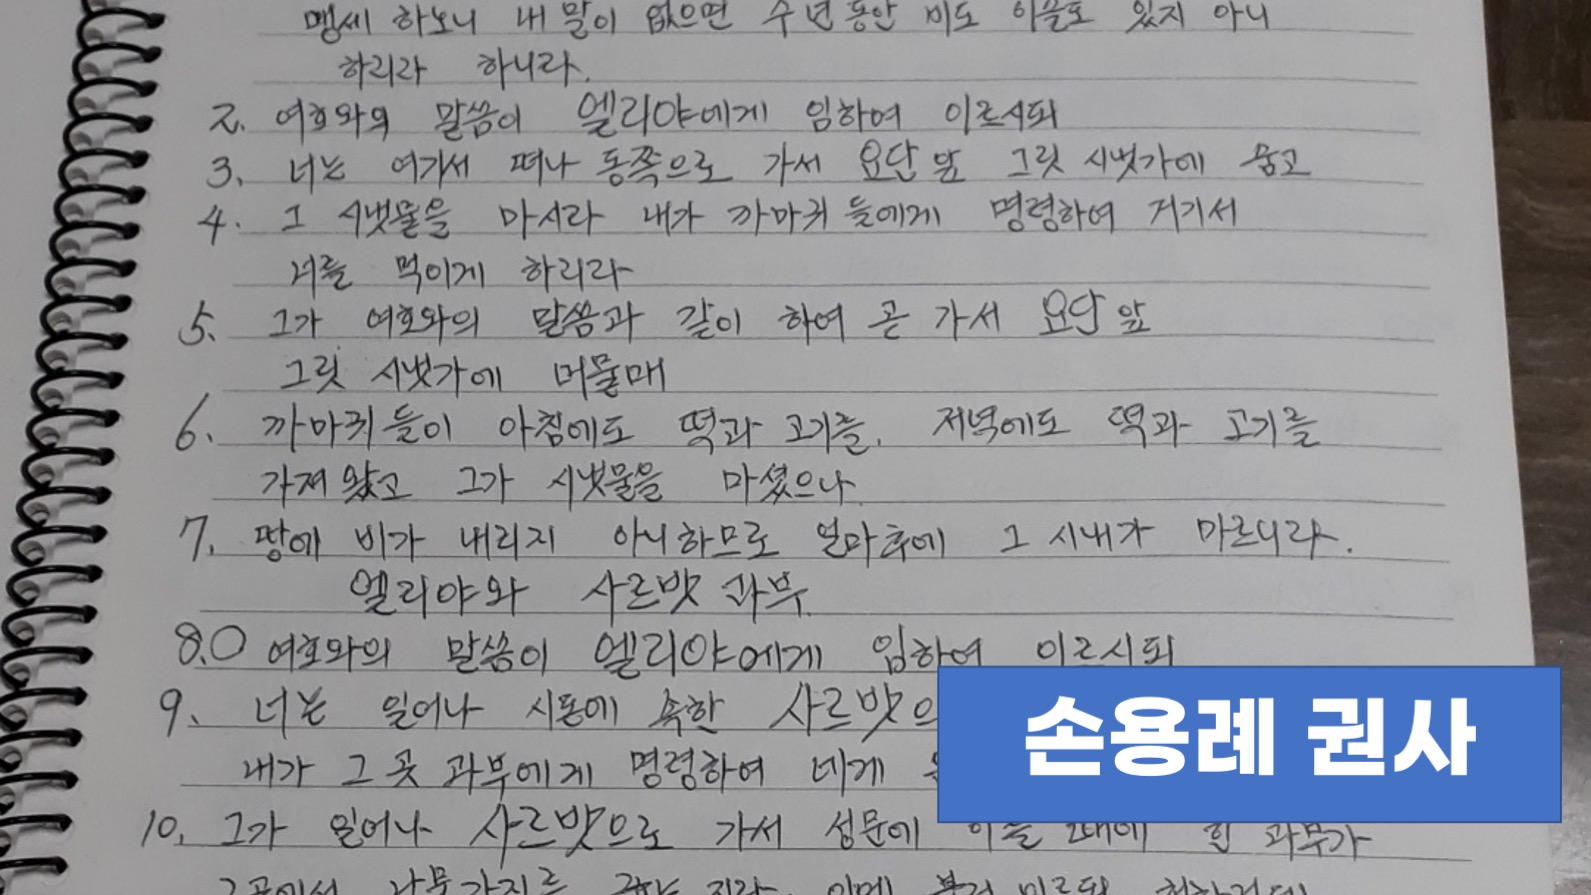 맹세 하노니 내 말이 없으면 수 년 동안 비도 이슬도 있지 아니
하리라 하니라.
2. 여호와의 말씀이 엘리야에게 임하여 이르시되
3. 너는 여기서 떠나 동쪽으로 가서 요단 앞 그릿 시냇가에 숨고
4. 그 시냇물을 마시라 내가 까마귀 들에게 명령하여 거기서
너를 먹이게 하리라
5. 그가 여호와의 말씀과 같이 하여 곧 가서 요단 앞
그릿 시냇가에 머물매
6. 까마귀 들이 아침에도 떡과 고기를, 저녁에도 떡과 고기를
가져 왔고 그가 시냇물을 마셨으나
7. 땅에 비가 내리지 아니하므로 얼마후에 그 시내가 마르니라.
엘리야와 사르밧 과부
8.O 여호와의 말씀이 엘리야에게 임하여 이르시되
9. 너는 일어나 시돈에 속한 사르밧으
내가 그 곳 과부에게 명령하여 네게
손용례 권사
10. 그가 일어나 사르밧으로 가서 성문에 이를 때에 한 과부가